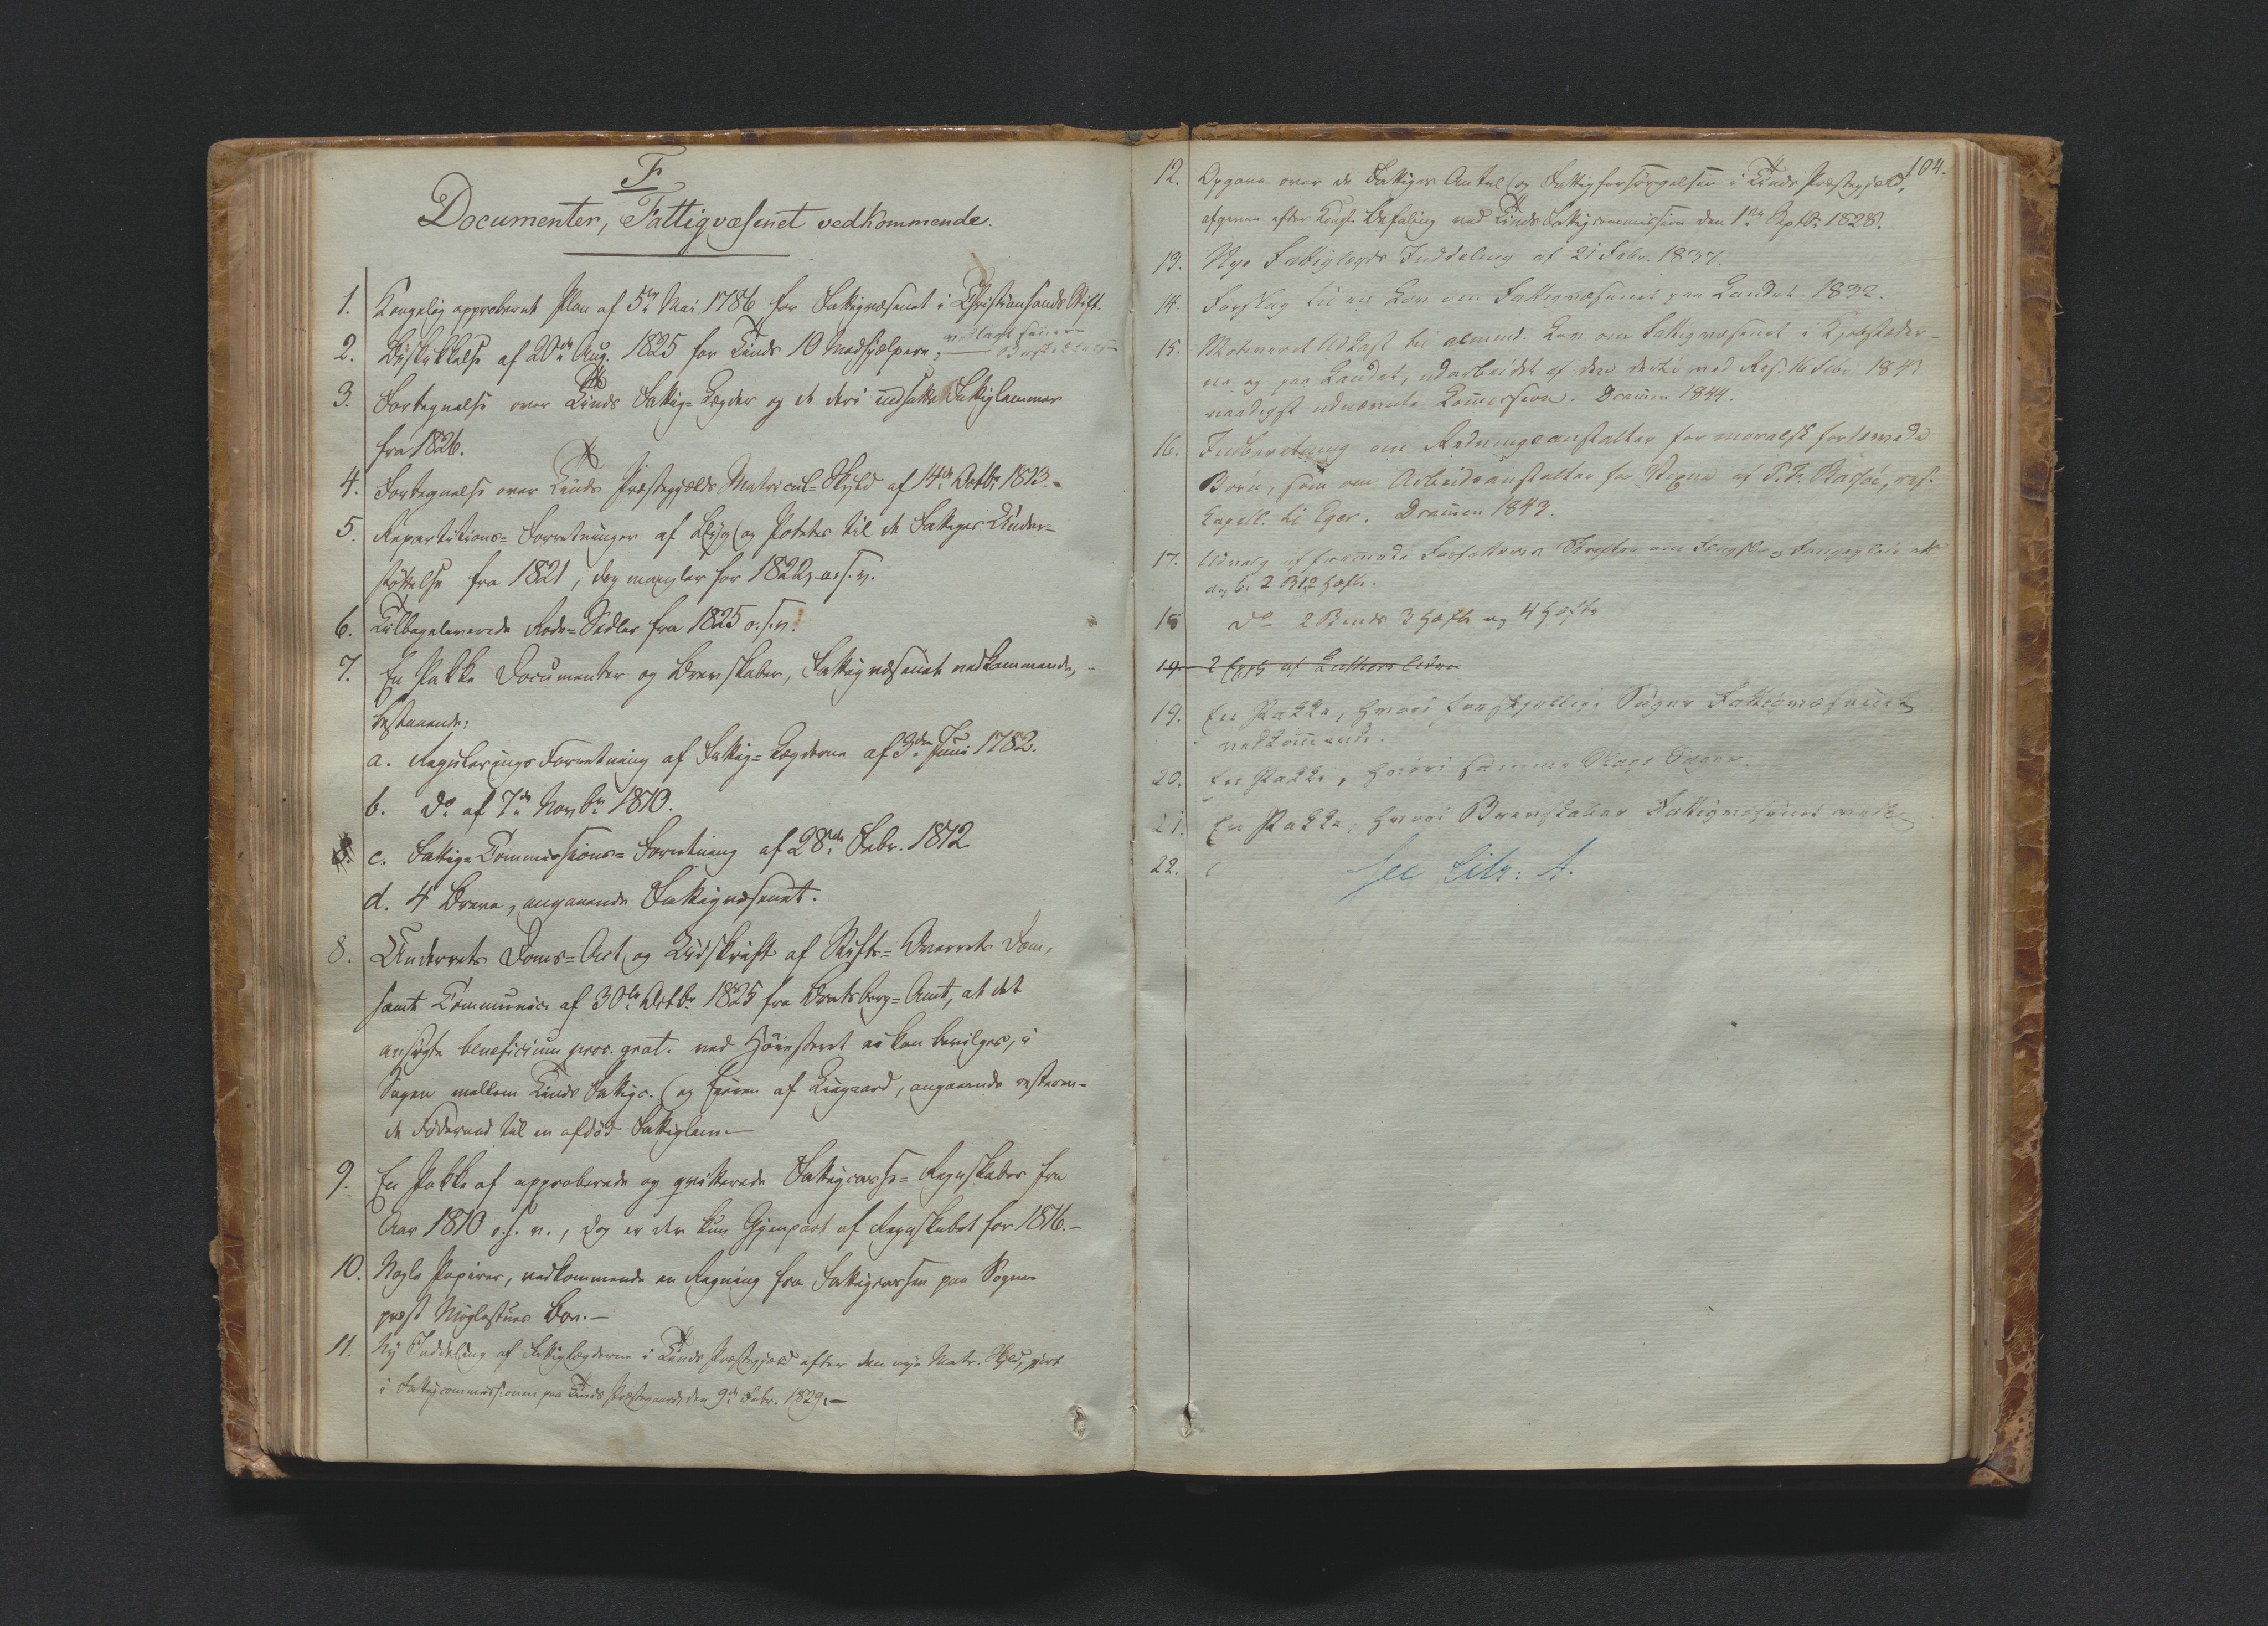 F
Documenter, Fattigvæsenet vedkommende.
1. Kongelig approberet Plan af 5te Mai 1786 for Fattigvæsenet i Christiansands Stift.
2. Beskikkelse af 20de Aug. 1825 for Tinds 10 Medhjælpere; vedlagt
3. Fortegnelse over Tinds Fattig-Lægder og de deri indsatte Fattiglemmer
fra 1826.
4. Fortegnelse over Tinds Præstegjelds Matricul-Skyld af 14de Octbr. 1813.
5. Repartitions-Forretninger af Byg og Poteter til de Fattiges Under-
støttelse fra 1821, dog mangler for 1822 o. s. v.
6. Tilbageleverede Rode-Sedler fra 1825 o. s. v.
7. En Pakke Documenter og Brevskaber, Fattigvæsenet vedkommende,
bestaaende:
a. Regulerings Forretning af Fattig-Lægderne af 3die Juni 1782.
b. do af 7de Novbr 1810.
c. Fattig-Commissions-Forretning af 28de Febr. 1812
d. 4 Breve, angaaende Fattigvæsenet.
8. Underrets Doms-Act og Udskrift af Stifts-Overrets Dom,
samt Communic. af 30te Octbr 1825 fra Bratsberg-Amt, at det
ansøgte beneficium proc. grat. ved Höiesteret ei kan bevilges, i
Sagen mellem Tinds Fattigc. og Eieren af angaaende resteren-
de Föderaad til en afdöd Fattiglem.
9. En Pakke af approberede og qvitterede Fattigcasse-Regnskaber fra
Aar 1810 o. s. v., dog er der kun Gjenpart af Regnskabet for 1816.
10. Nogle Papirer, vedkommende en Regning fra Fattigcassen paa Sogne-
præst Bo.
11. Ny Inddeling af Fattiglægderne i Tinds Præstegjæld efter den nye Matr. Skyld, gjort
i Fattigcommissionen paa Tinds Præstegaard den 9de Febr. 1829.
104.
12. Opgave over de Fattiges Antal og Fattigforsörgelsen i Tinds Præstegjæld,
afgiven efter Kongl. Befaling ved Tinds Fattigcommission den 1ste Septbr. 1828.
13. Nye Fattiglægds Inddeling af 21 Febr. 1837.
14. Forslag til en Lov om Fattigvæsenet paa Landet 1832.
15. Motiveret Udkast til almind. Lov om Fattigvæsenet i Kjøbstæder-
ne og paa Landet, udarbeidet af den dertil ved Res. 16 Febr 1843
naadigst udnævnte Commission. Drammen 1844.
16. Indberetning om Redningsanstalter for moralsk fordærvede
Börn, som om Arbeidsanstalter for Voxne af res.
Capell. til Eger. Drammen 1843.
17. Udvalg af fremmede Forfatteres Skrifter om
2 Hæfte.
18 do 2 Binds 3 Hæfte og 4 Hæfte
19. 2 Expl. af
19. En Pakke, hvori forskjellige Sager Fattigvæsenet
vedkommende.
20. En Pakke, hvori samme Slags Sager.
21. En Pakke, hvori Brevskaber Fattigvæsenet vedk.
22.
See Litr: A.